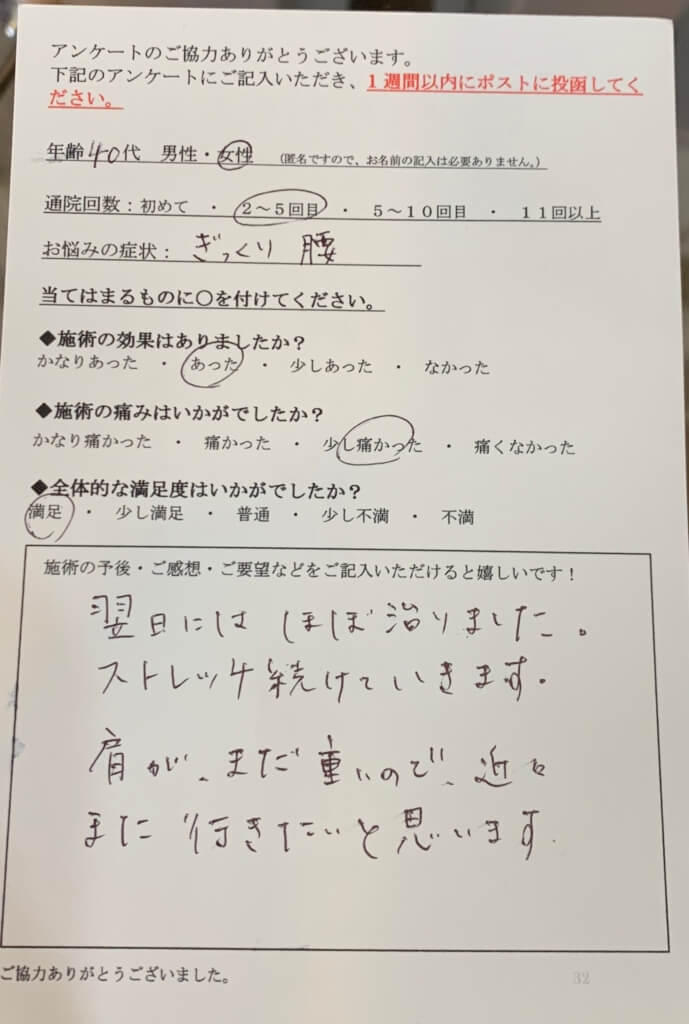 アンケートのご協力ありがとうございます。
下記のアンケートにご記入いただき、1週間以内にポストに投函してく
ださい。
年齢40代　男性・女性　（匿名ですので、お名前の記入は必要ありません。）
通院回数：初めて　・　2～5回目　・　5～10回目　・　11回以上
お悩みの症状：ぎっくり腰
当てはまるものに○を付けてください。
◆施術の効果はありましたか？
かなりあった　・　あった　・　少しあった　・　なかった
◆施術の痛みはいかがでしたか？
かなり痛かった　・　痛かった　・　少し痛かった　・　痛くなかった
◆全体的な満足度はいかがでしたか？
満足　・　少し満足　・　普通　・　少し不満　・　不満
施術の予後・ご感想・ご要望などをご記入いただけると嬉しいです！
翌日には ほぼ治りました。
ストレッチ続けていきます。
肩が、まだ重いので、近々
また行きたいと思います.
ご協力ありがとうございました。
32